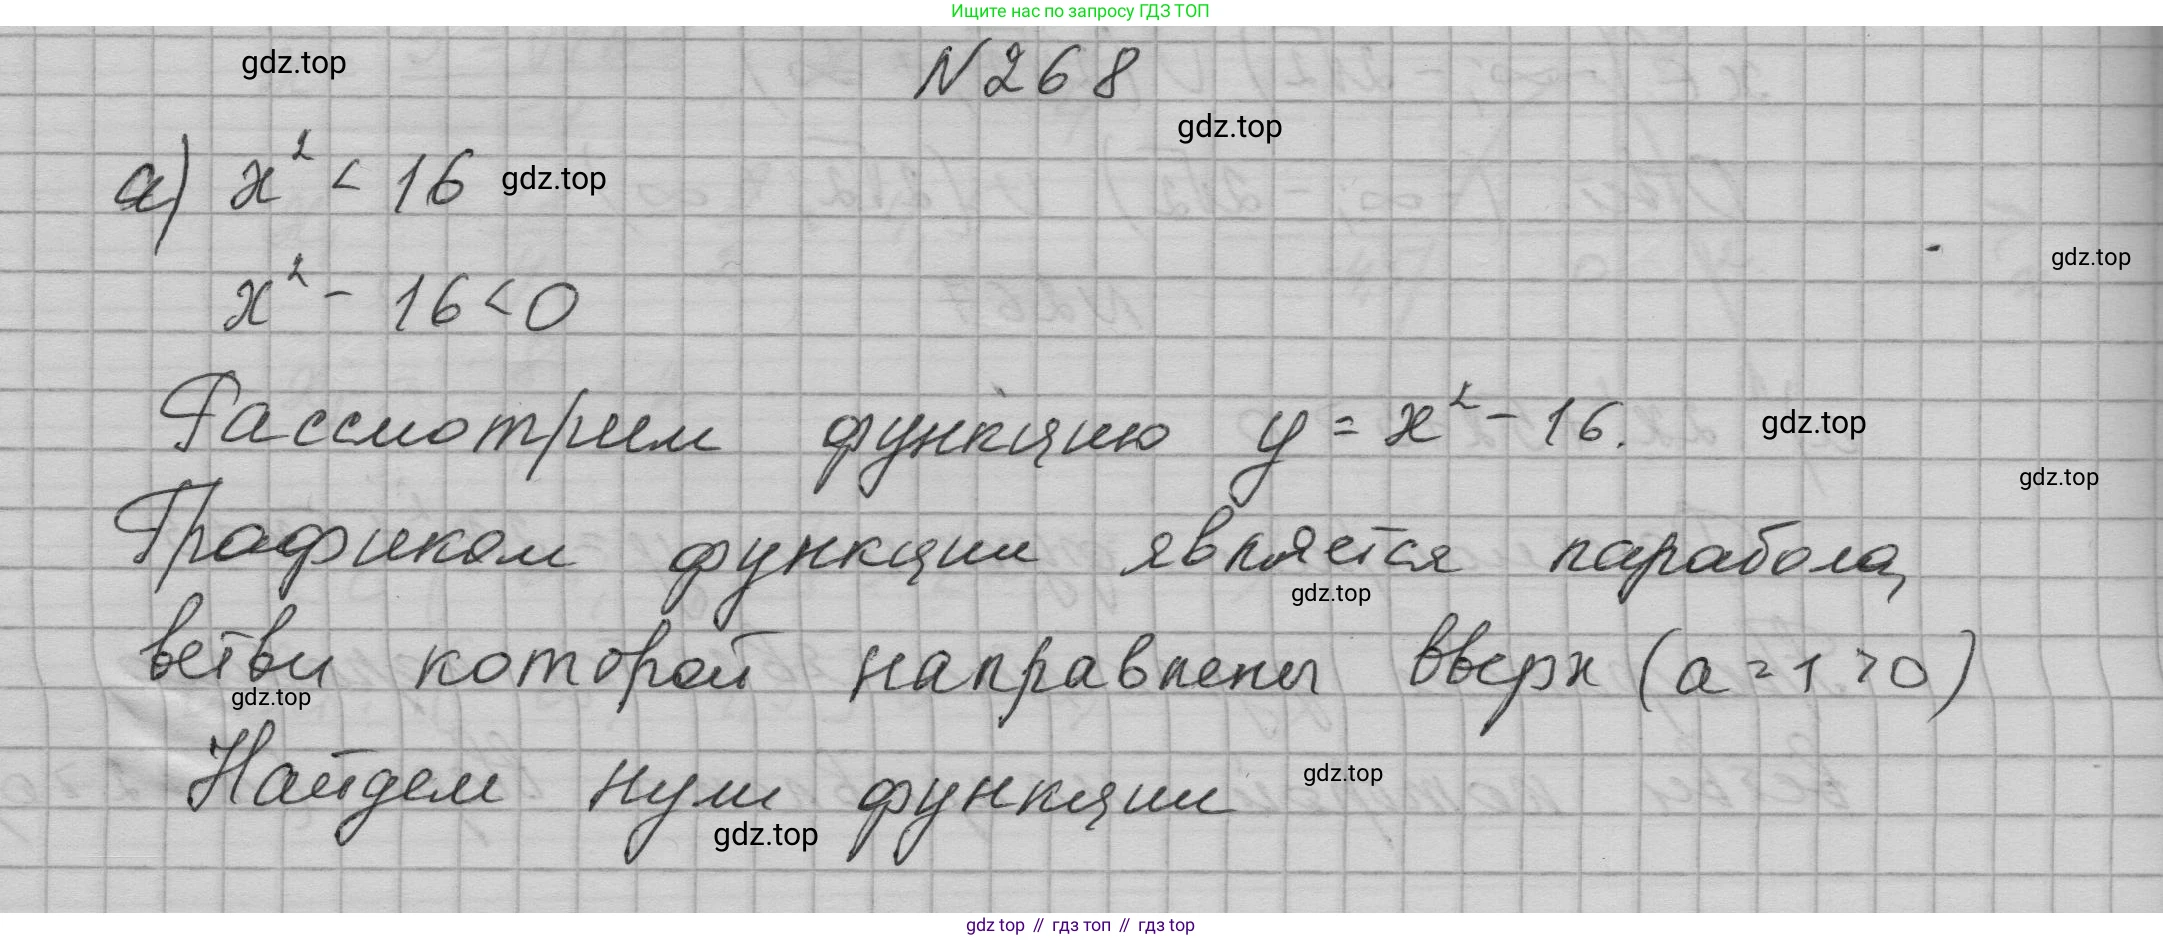 Ищите нас по запросу ГДЗ ТОП
gdz.top
N268
gdz.top
а) x² < 16
gdz.top
x² - 16 < 0
gdz.top
Рассмотрим функцию y = x² - 16.
gdz.top
gdz.top
Графиком функции является парабола,
gdz.top
ветви которой направлены вверх (a = 1 > 0)
gdz.top
Найдем нули функции
gdz.top
gdz.top
gdz top // гдз топ // гдз top